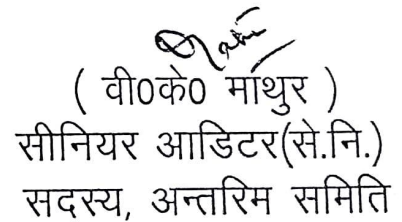 ( वी0के0 माथुर )
सीनियर आडिटर(से.नि.)
सदस्य, अन्तरिम समिति